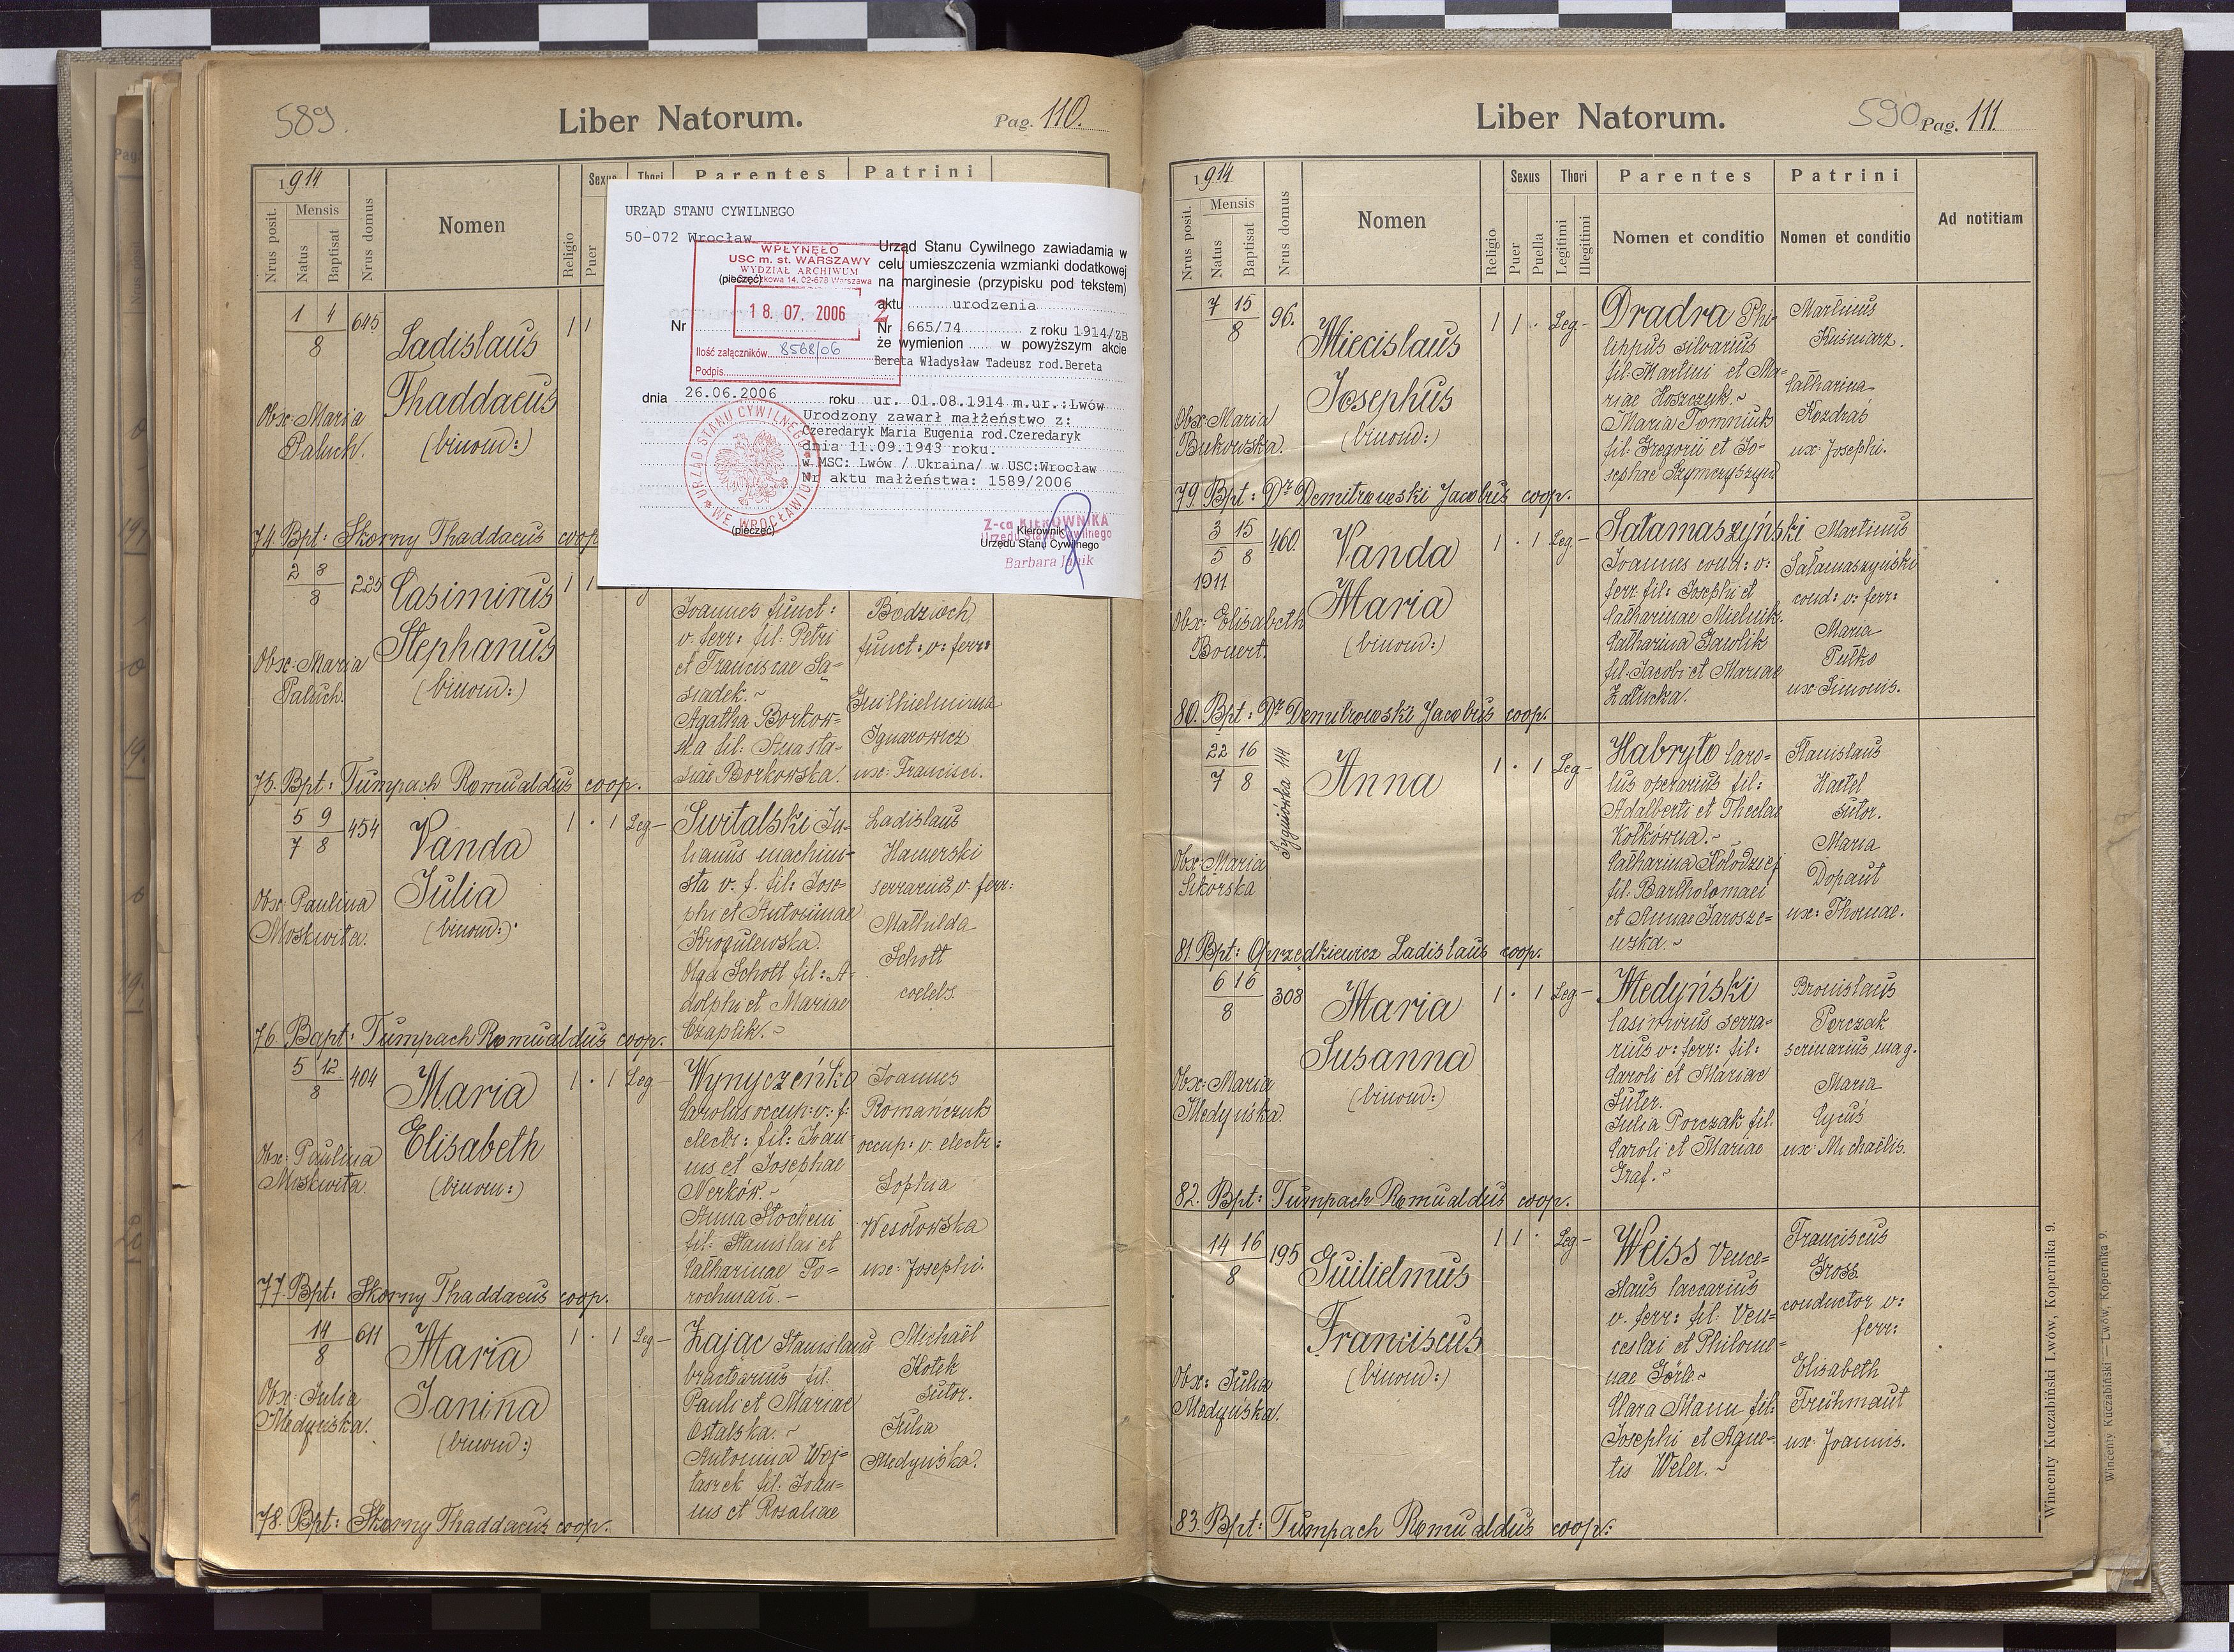 589.
Liber Natorum.
Pag. 110.
1914
Nrus posit.
Mensis
Natus
Baptisat
Nrus domus
Nomen
Religio
Sexus
Puer
Thori
Parentes
Patrini
1 4
8
645
Ladislaus
Thaddaeus
(binom:)
1 1
Obx: Maria
Paluch.
74 Bpt: Skorny Thaddaeus coop
URZĄD STANU CYWILNEGO
50-072 Wrocław
WPŁYNĘŁO
USC m. st. WARSZAWY
WYDZIAŁ ARCHIWUM
02-678 Warszawa
(pieczęć)
18. 07. 2006
2
Nr
Ilość załączników 8568/06
Podpis
Urząd Stanu Cywilnego zawiadamia w
celu umieszczenia wzmianki dodatkowej
na marginesie (przypisku pod tekstem)
aktu urodzenia
Nr 665/74 z roku 1914/ZB
że wymienion w powyższym akcie
Bereta Władysław Tadeusz rod.Bereta
dnia 26.06.2006 roku ur. 01.08.1914 m.ur.:Lwów
Urodzony zawarł małżeństwo z:
Czeredaryk Maria Eugenia rod.Czeredaryk
dnia 11.09.1943 roku.
w MSC: Lwów / Ukraina/ w USC:Wrocław
Nr aktu małżeństwa: 1589/2006
URZĄD STANU CYWILNEGO
WE WROCŁAWIU
(pieczęć)
Z-ca KIEROWNIKA
Urzędu Stanu Cywilnego
Kierownik
Urzędu Stanu Cywilnego
Barbara Janik
2 8
8
225
Casimirus
Stephanus
(binom:)
1 1
Obx: Maria
Paluch.
Joannes funct:
v. ferr: fil: Petri
et Franciscae Są-
siadek.~
Agatha Borkow-
ska fil: Anasta-
siae Borkowska.
Bodzioch
funct: v: ferr:
Guilhielmina
Ignarowicz
ux: Francisci.
75. Bpt: Tumpach Romualdus coop.
5 9
7 8
454
Vanda
Julia
(binom:)
1 · 1 Leg-
Obx: Paulina
Moskwita.
Switalski Ju-
lianus machini-
sta v. f. fil: Jose-
phi et Antoninae
Krogulewska.
Olga Schott fil: A-
dolphi et Mariae
Czaplik.~
Ladislaus
Hamerski
serrarius v. ferr:
Mathilda
Schott
coelebs.
76. Bapt: Tumpach Romualdus coop.
5 12
8
404
Maria
Elisabeth
(binom:)
1 · 1 Leg-
Obx: Paulina
Moskwita.
Wynyczeńko
Carolus occup: v: f:
electr: fil: Joan-
nis et Josephae
Nerków.~
Anna Stocheni
fil: Stanislai et
Catharinae Po-
rochnau.-
Joannes
Romańczuk
occup: v. electr:
Sophia
Wesołowska
ux: Josephi.
77. Bpt: Skorny Thaddaeus coop.
14
8
611
Maria
Janina
(binom:)
1 · 1 Leg-
Obx: Julia
Medyńska.
Zając Stanislaus
bractearius fil:
Pauli et Mariae
Ostalska.~
Antonina Woj-
taszek fil: Joan-
nis et Rosaliae
Michaël
Kotek
sutor.
Julia
Medyńska.
78. Bpt: Skorny Thaddaeus coop.
Liber Natorum.
590
Pag. 111.
1914
Nrus posit.
Mensis
Natus
Baptisat
Nrus domus
Nomen
Religio
Sexus
Puer
Puella
Thori
Legitimi
Illegitimi
Parentes
Nomen et conditio
Patrini
Nomen et conditio
Ad notitiam
7 15
8
96.
Miecislaus
Josephus
(binom:)
1 1 · Leg-
Obx: Maria
Bukowska.
Dradra Phi-
lippus silvarius
fil: Martini et Ma-
riae Hoszczyk.~
Maria Tomniuk
fil: Gregorii et Jo-
sephae Szymczyszyn
Martinus
Kusmiarz.
Catharina
Kozdraś
ux: Josephi.
79. Bpt: Dr Demitrowski Jacobus coop.
3 15
5 8
1911
460.
Vanda
Maria
(binom:)
1 · 1 Leg-
Obx: Elisabeth
Bouert.
Sałamaszyński
Joannes cond: v:
ferr: fil: Josephi et
Catharinae Mielnik.
Catharina Gawlik
fil: Jacobi et Mariae
Załucka.
Martinus
Sałamaszyński
cond: v: ferr:
Maria
Pułko
ux: Simonis.
80. Bpt: Dr Demitrowski Jacobus coop.
22 16
7 8
Sygniówka 114
Anna
1 · 1 Leg-
Obx: Maria
Sikorska
Habryło Caro-
lus operarius fil:
Adalberti et Theclae
Kołkówna.~
Catharina Kołodziej
fil: Bartholomaei
et Annae Jarosze-
wska.~
Stanislaus
Haetel
sutor.
Maria
Dopaut
ux: Thomae.
81. Bpt: Ładislaus coop.
6 16
8
308
Maria
Susanna
(binom:)
1 · 1 Leg-
Obx: Maria
Medyńska.
Medyński
Casimirus serra-
rius v: ferr: fil:
Caroli et Mariae
Suter.
Julia Porczak fil:
Caroli et Mariae
Graf.~
Bronislaus
Porczak
scriniarius mag.
Maria
Cycuś
ux: Michaëlis.
82. Bpt: Tumpach Romualdus coop.
14 16
8
195
Guilielmus
Franciscus
(binom:)
1 1 · Leg-
Obx: Julia
Medyńska.
Weiss Vence-
slaus laccarius
v. ferr: fil: Ven-
ceslai et Philome-
nae Görle~
Clara Mann fil:
Josephi et Agne-
tis Weler.~
Franciscus
Gross
conductor v:
ferr:
Elisabeth
Frühmaut
ux: Joannis.
83. Bpt: Tumpach Romualdus coop:
Wincenty Kuczabiński Lwów, Kopernika 9.
Wincenty Kuczabiński — Lwów, Kopernika 9.